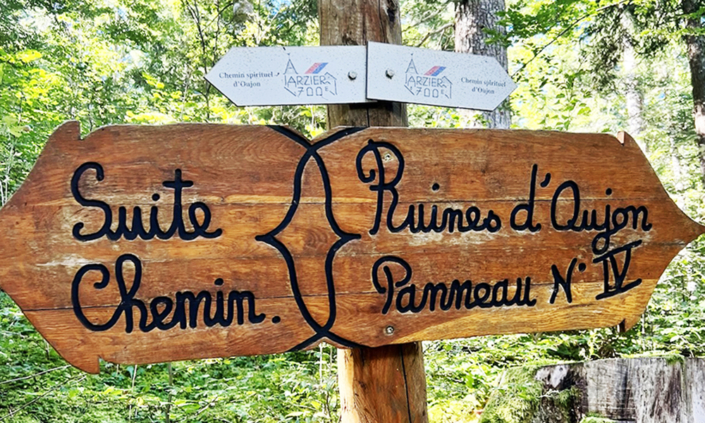 Chemin spirituel
d'Oujon
ARZIER
700
ARZIER
700
Chemin spirituel
d'Oujon
Suite
Chemin.
Ruines d'Oujon
Panneau N° IV